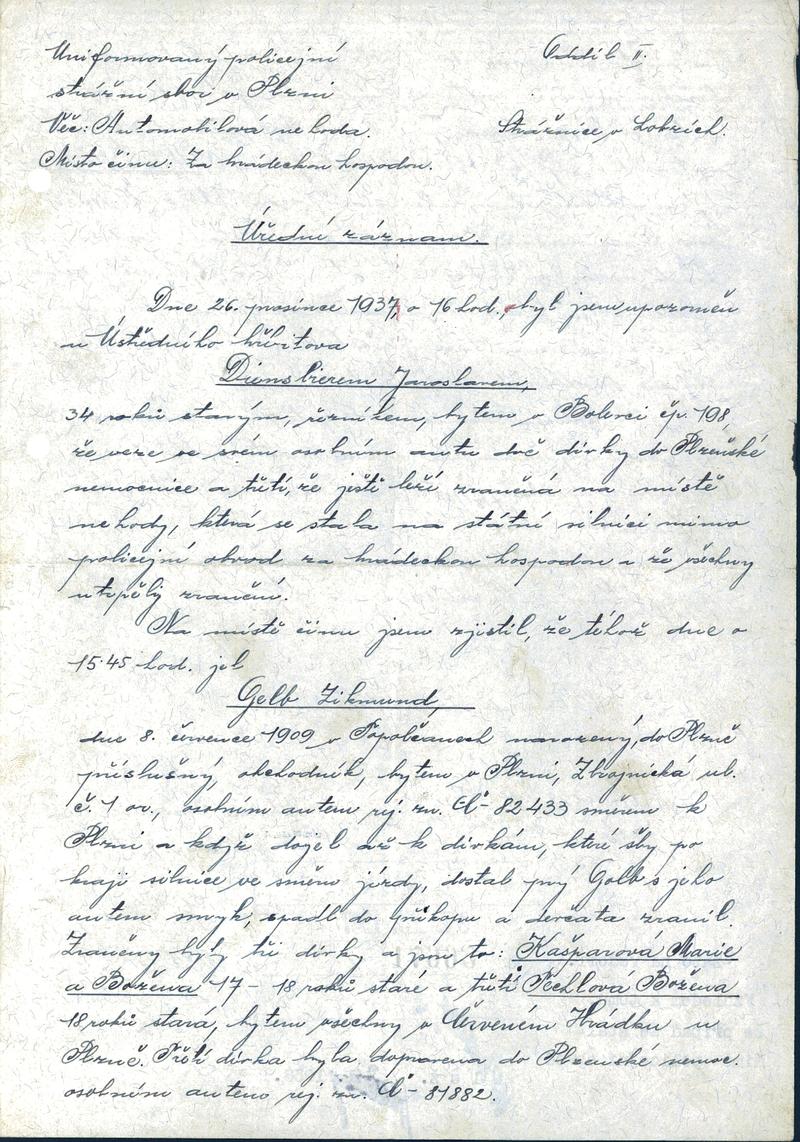 Uniformovaný policejní
strážní sbor v Plzni
Oddíl II.
Věc: Automobilová nehoda.
Strážnice v Lobzích.
Místo činu: Za hrádeckou hospodou.
Úřední záznam.
Dne 26. prosince 1937, o 16 hod., byl jsem upozorněn
u Ústředního hřbitova
Diensbierem Jaroslavem,
34 roků starým, řezníkem, bytem v Bolevci čp. 198,
že veze ve svém osobním autu dvě dívky do Plzeňské
nemocnice a třetí, že ještě leží zraněná na místě
nehody, která se stala na státní silnici mimo
policejní obvod za hrádeckou hospodou a že všechny
utrpěly zranění.
Na místě činu jsem zjistil, že téhož dne o
15.45 hod. jel
Gelb Zikmund,
dne 8. července 1909 v Topolčanech narozený, do Plzně
příslušný, obchodník, bytem v Plzni, Zbrojnická ul.
č. 1 ov., osobním autem rej. zn. Č - 82433 směrem k
Plzni a když dojel až k dívkám, které šly po
kraji silnice ve směru jízdy, dostal prý Gelb s jeho
autem smyk, spadl do příkopu a děvčata zranil.
Zraněny byly tři dívky a jsou to: Kašparová Marie
a Božena 17 - 18 roků staré a třetí Pechlová Božena
18 roků stará, bytem všechny v Červeném Hrádku u
Plzně. Třetí dívka byla dopravena do Plzeňské nemoc.
osobním autem rej. zn. Č - 81882.